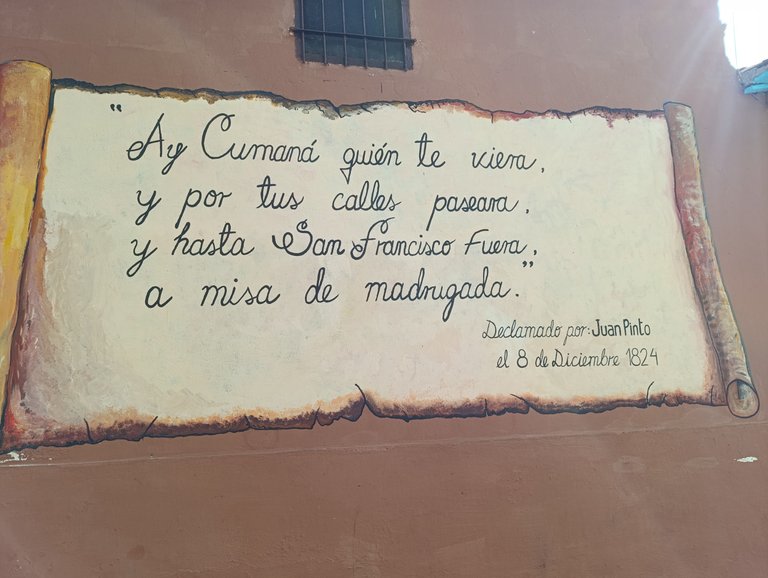 "Ay Cumaná quién te viera,
y por tus calles paseara,
y hasta San Francisco Fuera,
a misa de madrugada."
Declamado por: Juan Pinto
el 8 de Diciembre 1824